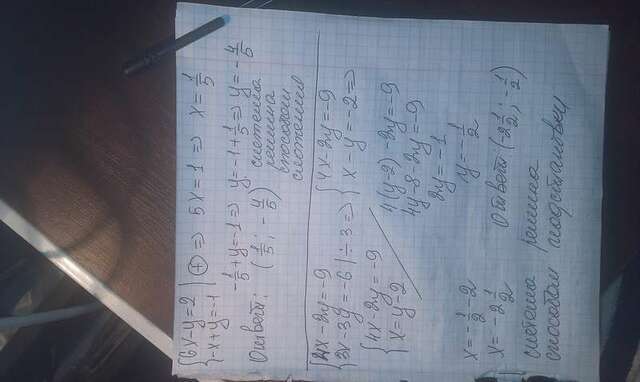 {6x-y=2 | ⊕ ⇒ 5x=1 ⇒ x=1/5
{-x+y=-1
-1/5+y=-1 ⇒ y=-1+1/5 ⇒ y=-4/5
Ответ: (1/5; -4/5) система
решена
способом
сложения
{4x-2y=-9
{3x-3y=-6 | ÷3 ⇒ {4x-2y=-9
{x-y=-2 ⇒
{4x-2y=-9
{x=y-2
4(y-2)-2y=-9
4y-8-2y=-9
2y=-1
y=-1/2
x=-1/2-2
x=-2 1/2
Ответ (-2 1/2; -1/2)
система решена
способом подстановки